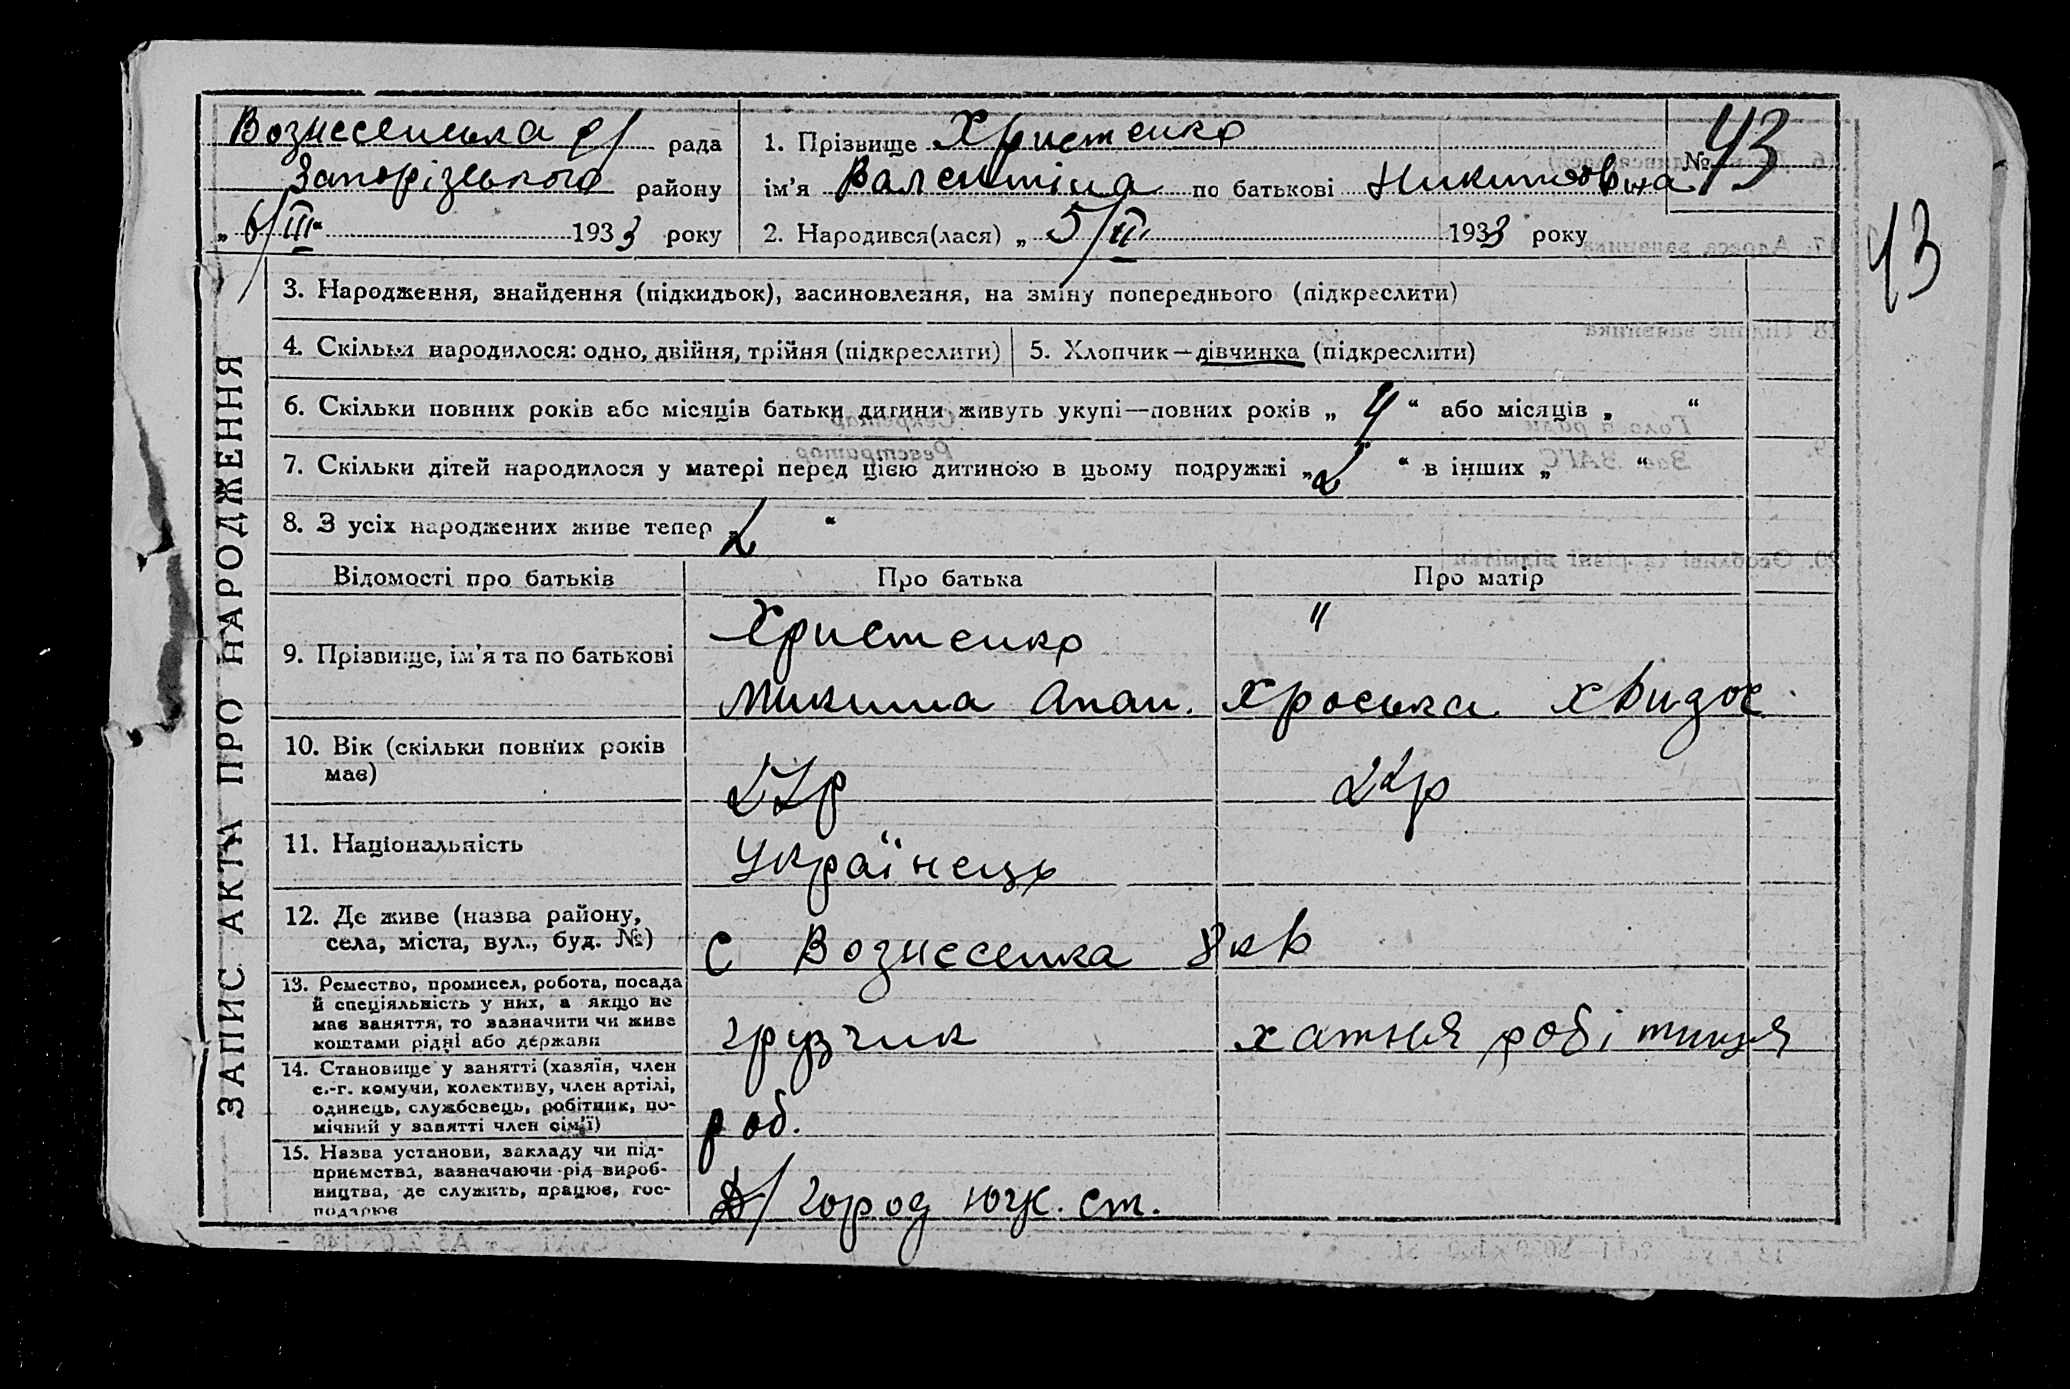 Вознесенська с/ рада
Запорізького району
„6/III“ 1933 року
1. Прізвище Христенко
ім'я Валентіна по батькові Никитовна
2. Народився(лася) „5/II 1933 року
№ 43
43
ЗАПИС АКТА ПРО НАРОДЖЕННЯ
3. Народження, знайдення (підкидьок), засиновлення, на зміну попереднього (підкреслити)
4. Скільки народилося: одно, двійня, трійня (підкреслити) 5. Хлопчик—дівчинка (підкреслити)
6. Скільки повних років або місяців батьки дитини живуть укупі—повних років „ 4 “ або місяців „ “
7. Скільки дітей народилося у матері перед цією дитиною в цьому подружжі „ 2 “ в інших „ “
8. З усіх народжених живе тепер „ 2 “
Відомості про батьків Про батька Про матір
9. Прізвище, ім'я та по батькові
Христенко "
Микита Апан. Хроська Хвидос
10. Вік (скільки повних років
має)
27р 22р
11. Національність
Українець
12. Де живе (назва району,
села, міста, вул., буд. №)
с Вознесенка 8 кв
13. Ремество, промисел, робота, посада
й спеціяльність у них, а якщо не
має заняття, то зазначити чи живе
коштами рідні або держави
грузчик хатня робітниця
14. Становище у занятті (хазяїн, член
с.-г. комуни, колективу, член артілі,
одинець, службовець, робітник, по-
мічний у занятті член сім'ї)
роб.
15. Назва установи, закладу чи під-
приємства, зазначаючи рід вироб-
ництва, де служить, працює, гос-
подарює
город юж. ст.